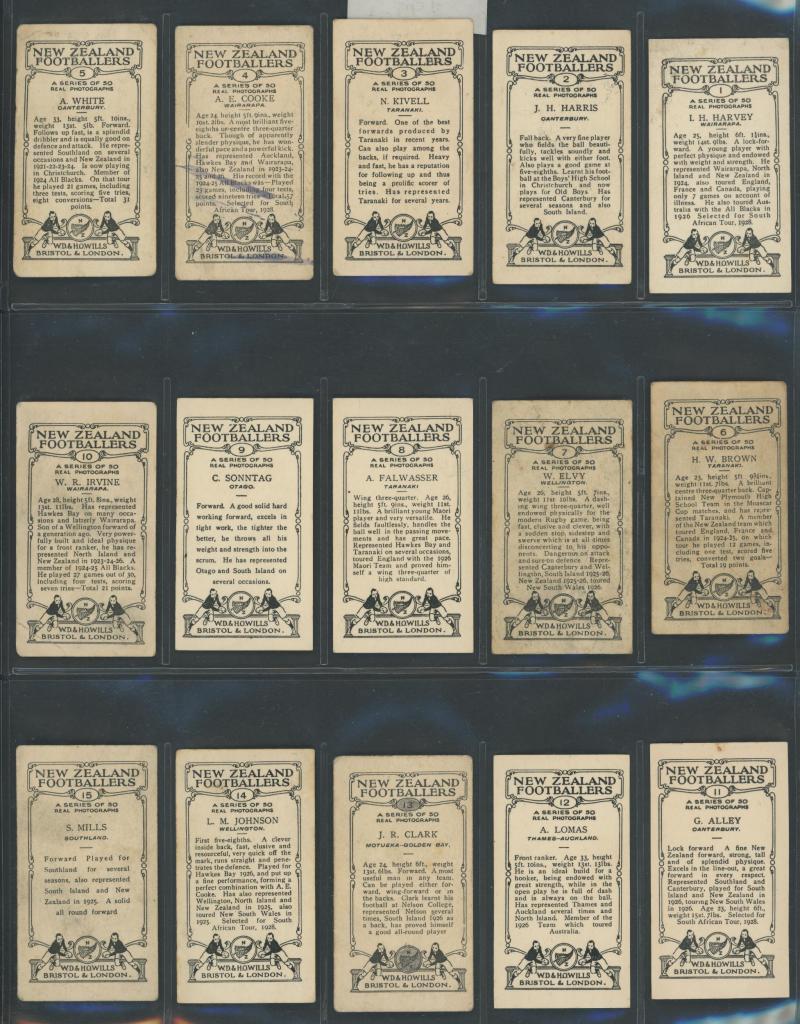 NEW ZEALAND
FOOTBALLERS
5
A SERIES OF 50
REAL PHOTOGRAPHS
A. WHITE
CANTERBURY.
Age 33, height 5ft. 10ins.,
weight 13st. 5lb. Forward.
Follows up fast, is a splendid
dribbler and is equally good on
defence and attack. He re-
presented Southland on several
occasions and New Zealand in
1921-22-23-24. Is now playing
in Christchurch. Member of
1924 All Blacks. On that tour
he played 21 games, including
three tests, scoring five tries,
eight conversions—Total 31
points.
W.D. & H.O. WILLS
BRISTOL & LONDON.
NEW ZEALAND
FOOTBALLERS
4
A SERIES OF 50
REAL PHOTOGRAPHS
A. E. COOKE
WAIRARAPA.
Age 24, height 5ft. 9ins., weight
10st. 2lbs. A most brilliant five-
eighths or centre three-quarter
back. Though of apparently
slender physique, he has won-
derful pace and a powerful kick.
Has represented Auckland,
Hawkes Bay and Wairarapa,
also New Zealand in 1923-24-
25 and 26. His record with the
1924-25 All Blacks was—Played
25 games, including four tests,
scored nineteen tries—Total 57
points. Selected for South
African Tour, 1928.
W.D. & H.O. WILLS
BRISTOL & LONDON.
NEW ZEALAND
FOOTBALLERS
3
A SERIES OF 50
REAL PHOTOGRAPHS
N. KIVELL
TARANAKI.
Forward. One of the best
forwards produced by
Taranaki in recent years.
Can also play among the
backs, if required. Heavy
and fast, he has a reputation
for following up and thus
being a prolific scorer of
tries. Has represented
Taranaki for several years.
W.D. & H.O. WILLS
BRISTOL & LONDON.
NEW ZEALAND
FOOTBALLERS
2
A SERIES OF 50
REAL PHOTOGRAPHS
J. H. HARRIS
CANTERBURY.
Full back. A very fine player
who fields the ball beauti-
fully, tackles soundly and
kicks well with either foot.
Also plays a good game at
five-eighths. Learnt his foot-
ball at the Boys' High School
in Christchurch and now
plays for Old Boys Has
represented Canterbury for
several seasons and also
South Island.
W.D. & H.O. WILLS
BRISTOL & LONDON.
NEW ZEALAND
FOOTBALLERS
1
A SERIES OF 50
REAL PHOTOGRAPHS
I. H. HARVEY
WAIRARAPA.
Age 25, height 6ft. 1½ins.,
weight 14st. 9lbs. A lock-for-
ward. A young player with
perfect physique and endowed
with weight and strength. He
represented Wairarapa, North
Island and New Zealand in
1924, also toured England,
France and Canada, playing
only 7 games on account of
illness. He also toured Aus-
tralia with the All Blacks in
1926 Selected for South
African Tour, 1928.
W.D. & H.O. WILLS
BRISTOL & LONDON.
NEW ZEALAND
FOOTBALLERS
10
A SERIES OF 50
REAL PHOTOGRAPHS
W. R. IRVINE
WAIRARAPA.
Age 28, height 5ft. 8ins., weight
13st. 11lbs. Has represented
Hawkes Bay on many occa-
sions and latterly Wairarapa.
Son of a Wellington forward of
a generation ago. Very power-
fully built and ideal physique
for a front ranker, he has re-
presented North Island and
New Zealand in 1923-24-26. A
member of 1924-25 All Blacks.
He played 27 games out of 30,
including four tests, scoring
seven tries—Total 21 points.
W.D. & H.O. WILLS
BRISTOL & LONDON.
NEW ZEALAND
FOOTBALLERS
9
A SERIES OF 50
REAL PHOTOGRAPHS
C. SONNTAG
OTAGO.
Forward. A good solid hard
working forward, excels in
tight work, the tighter the
better, he throws all his
weight and strength into the
scrum. He has represented
Otago and South Island on
several occasions.
W.D. & H.O. WILLS
BRISTOL & LONDON.
NEW ZEALAND
FOOTBALLERS
8
A SERIES OF 50
REAL PHOTOGRAPHS
A. FALWASSER
TARANAKI
Wing three-quarter. Age 26,
height 5ft. 9ins., weight 11st.
11lbs. A brilliant young Maori
player and very versatile. He
fields faultlessly, handles the
ball well in the passing move-
ments and has great pace.
Represented Hawkes Bay and
Taranaki on several occasions,
toured England with the 1926
Maori Team and proved him-
self a wing three-quarter of
high standard.
W.D. & H.O. WILLS
BRISTOL & LONDON.
NEW ZEALAND
FOOTBALLERS
7
A SERIES OF 50
REAL PHOTOGRAPHS
W. ELVY
WELLINGTON.
Age 26, height 5ft. 7ins.,
weight 11st 10lbs. A dash-
ing wing three-quarter, well
endowed physically for the
modern Rugby game, being
fast, elusive and clever, with
a sudden stop, sidestep and
swerve which is at all times
disconcerting to, his oppo-
nents. Dangerous on attack
and sure on defence. Repre-
sented Canterbury and Wel-
lington, South Island 1925-26,
New Zealand 1925-26, toured
New South Wales 1926.
W.D. & H.O. WILLS
BRISTOL & LONDON.
NEW ZEALAND
FOOTBALLERS
6
A SERIES OF 50
REAL PHOTOGRAPHS
H. W. BROWN
TARANAKI.
Age 23, height 5ft 9½ins.,
weight 11st. 7lbs. A brilliant
centre three-quarter back. Cap-
tained New Plymouth High
School Team in the Moascar
Cup matches, and has repre-
sented Taranaki. A member
of the New Zealand team which
toured England, France and
Canada in 1924-25, on which
tour he played 12 games, in-
cluding one test, scored five
tries, converted two goals—
Total 19 points.
W.D. & H.O. WILLS
BRISTOL & LONDON.
NEW ZEALAND
FOOTBALLERS
15
A SERIES OF 50
REAL PHOTOGRAPHS
S. MILLS
SOUTHLAND.
Forward Played for
Southland for several
seasons, also represented
South Island and New
Zealand in 1925. A solid
all round forward
W.D. & H.O. WILLS
BRISTOL & LONDON.
NEW ZEALAND
FOOTBALLERS
14
A SERIES OF 50
REAL PHOTOGRAPHS
L. M. JOHNSON
WELLINGTON.
First five-eighths. A clever
inside back, fast, elusive and
resourceful, very quick off the
mark, runs straight and pene-
trates the defence. Played for
Hawkes Bay 1926, and put up
a fine performance, forming a
perfect combination with A. E.
Cooke. Has also represented
Wellington, North Island and
New Zealand in 1925, also
toured New South Wales in
1925. Selected for South
African Tour, 1928.
W.D. & H.O. WILLS
BRISTOL & LONDON.
NEW ZEALAND
FOOTBALLERS
13
A SERIES OF 50
REAL PHOTOGRAPHS
J. R. CLARK
MOTUEKA-GOLDEN BAY.
Age 24, height 6ft., weight
13st. 6lbs. Forward. A most
useful man in any team.
Can be played either for-
ward, wing-forward or in
the backs. Clark learnt his
football at Nelson College,
represented Nelson several
times, South Island 1926 as
a back, has proved himself
a good all-round player
W.D. & H.O. WILLS
BRISTOL & LONDON.
NEW ZEALAND
FOOTBALLERS
12
A SERIES OF 50
REAL PHOTOGRAPHS
A. LOMAS
THAMES-AUCKLAND.
Front ranker. Age 33, height
5ft. 10ins., weight 13st. 13lbs.
He is an ideal build for a
hooker, being endowed with
great strength, while in the
open play he is full of dash
and is always on the ball.
Has represented Thames and
Auckland several times and
North Island. Member of the
1926 Team which toured
Australia.
W.D. & H.O. WILLS
BRISTOL & LONDON.
NEW ZEALAND
FOOTBALLERS
11
A SERIES OF 50
REAL PHOTOGRAPHS
G. ALLEY
CANTERBURY.
Lock forward A fine New
Zealand forward, strong, tall
and of splendid physique.
Excels in the line-out, a great
forward in every respect.
Represented Southland and
Canterbury, played for South
Island and New Zealand in
1926, touring New South Wales
in 1926. Age 23, height 6ft.,
weight 15st. 7lbs. Selected for
South African Tour, 1928.
W.D. & H.O. WILLS
BRISTOL & LONDON.